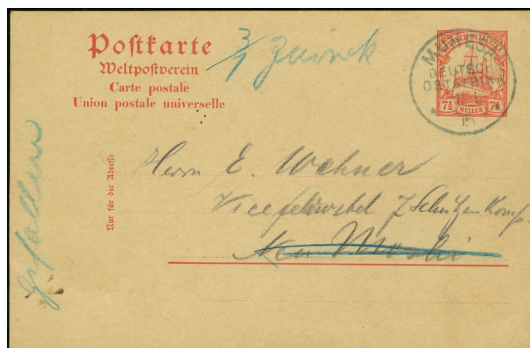 Postkarte
Weltpostverein
Carte postale
Union postale universelle
3/1 Zurück
DEUTSCH-
OSTAFRIKA
15
7½ HELLER 7½
Nur für die Adresse
Herrn E. Wehner
Vicefeldwebel 7 Schützen Komp.
Neu Moshi
gefallen